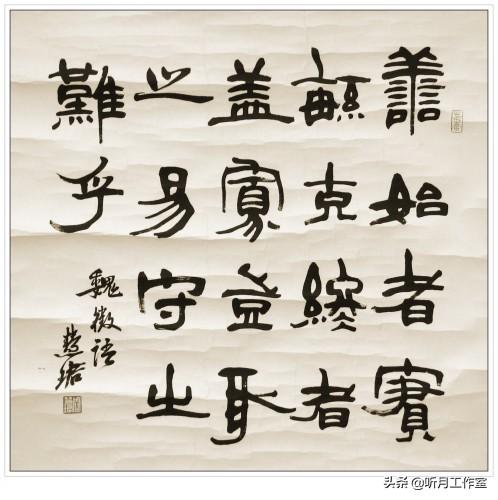 譱始者實
緐克終者
盖寡豈取
之易守之
難乎
魏徵語
头条 @听月工作室